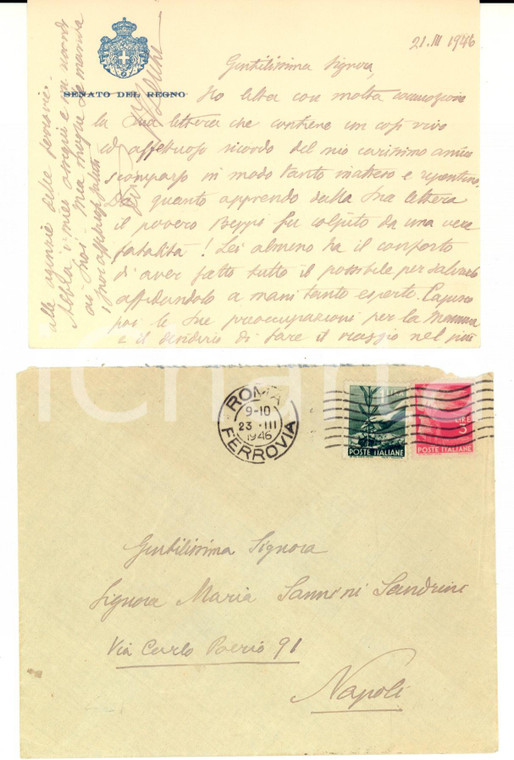 21.III 1946
SENATO DEL REGNO
Gentilissima Signora,
Ho letto con molta commozione
la Sua lettera che contiene un così vivo
ed affettuoso ricordo del mio carissimo amico
scomparso in modo tanto inatteso e repentino.
Da quanto apprendo dalla Sua lettera
il povero Beppe fu colpito da una vera
fatalità! Lei almeno ha il conforto
di aver fatto tutto il possibile per salvarlo
affidandolo a mani tanto esperte. Capisco
poi le Sue preoccupazioni per la Mamma
e il desiderio di fare il viaggio nel più
alle agenzie delle ferrovie.
Abbia i miei auguri e mi ricordi
ai Suoi. Mia moglie Le manda
i suoi affettuosi saluti
ROMA
9-10
23 · III
1946
FERROVIA
POSTE ITALIANE
LIRE
3
POSTE ITALIANE
Gentilissima Signora
Signora Maria Sannini Sandrini
Via Carlo Poerio 91
Napoli